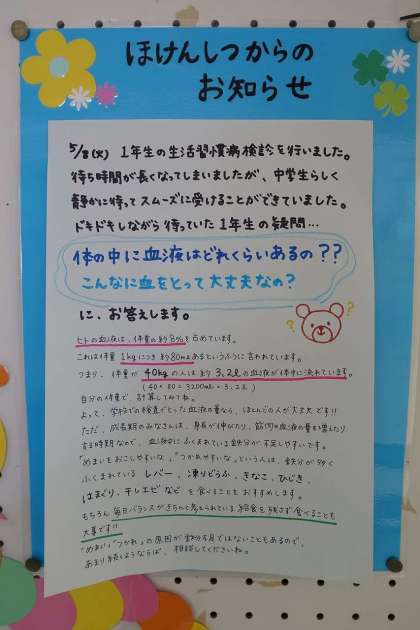 ほけんしつからの
お知らせ
5/8(火) 1年生の生活習慣病検診を行いました。
待ち時間が長くなってしまいましたが、中学生らしく
静かに待ってスムーズに受けることができていました。
ドキドキしながら待っていた1年生の疑問…
体の中に血液はどれくらいあるの??
こんなに血をとって大丈夫なの?
に、お答えします。
ヒトの血液は、体重の約8%を占めています。
これは体重1kgにつき約80mLあるというふうに言われています。
つまり、体重が40kgの人は約3.2Lの血液が体中に流れています。
(40×80=3200mL=3.2L)
自分の体重で、計算してみてね。
よって、学校での検査でとった血液の量なら、ほとんどの人が大丈夫です!!
ただ、成長期のみなさんは、身長が伸びたり、筋肉や血液の量も増えたり
する時期なので、血液中にふくまれている鉄分が不足しやすいです。
"めまいをおこしやすいな""つかれやすいな"という人は、鉄分が多く
ふくまれている レバー、凍りどうふ、きなこ、ひじき、
はまぐり、干しエビなど を食べることもおすすめします。
もちろん毎日バランスがきちんと考えられている給食を残さず食べることも
大事です!!
"めまい""つかれ"の原因が鉄分不足ではないこともあるので、
あまり続くようならば、相談してくださいね。